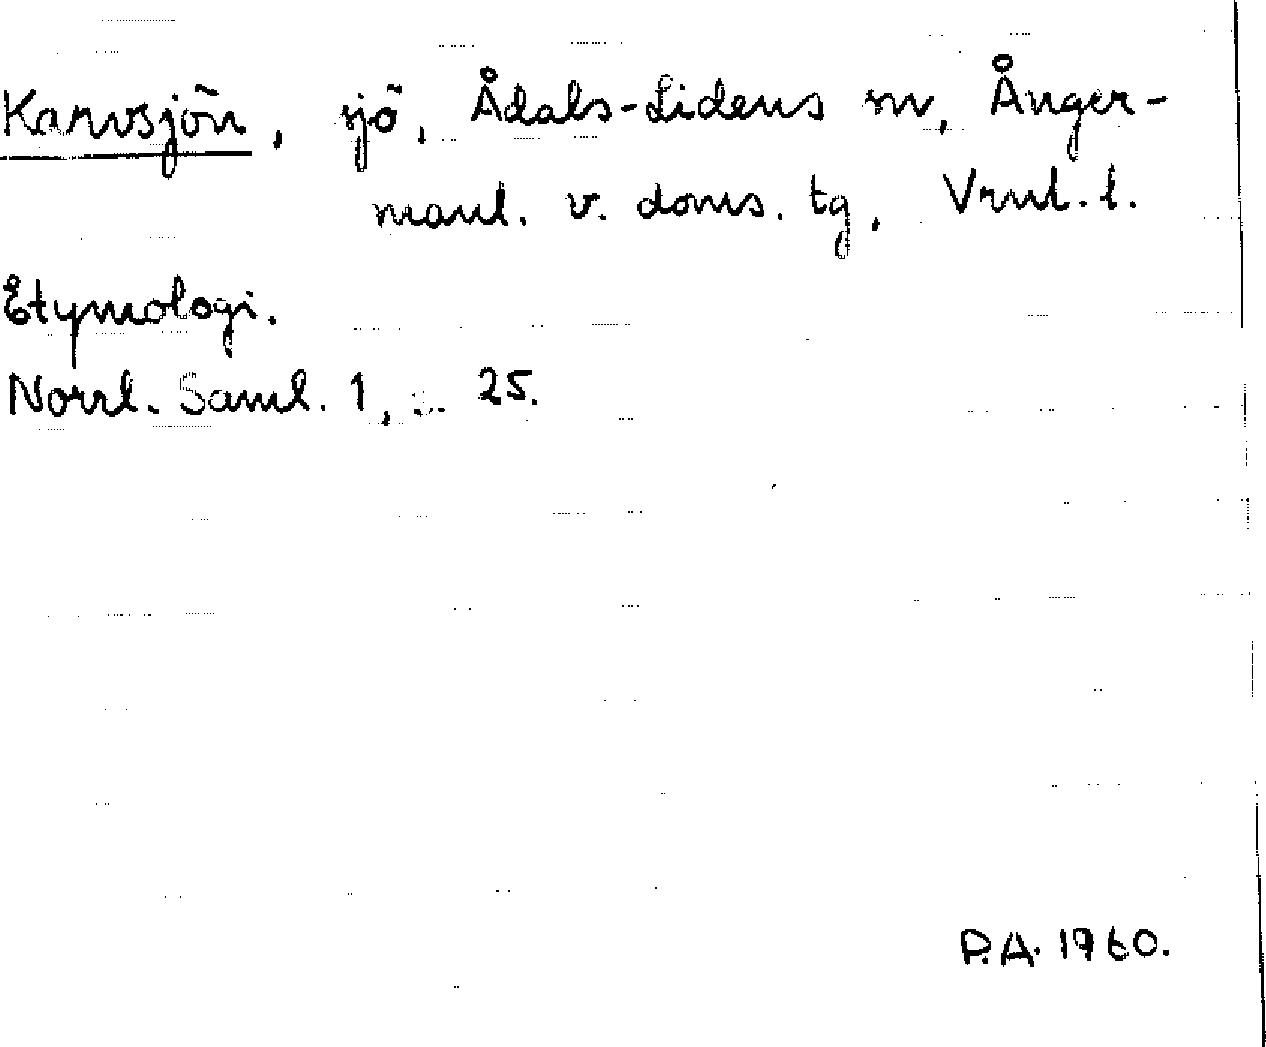 Karvsjön, sjö, Ådals-Lidens sn, Ånger-
manl. v. doms. tg, Vrnl. l.
Etymologi.
Norrl. Saml. 1, s. 25.
P.A. 1960.